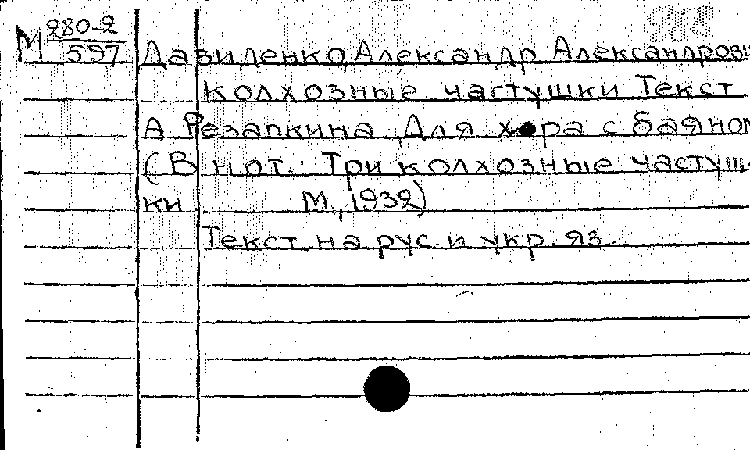 М 280-2
597
Давиденко, Александр Александрович
Колхозные частушки Текст
А Резапкина Для хора с баяном
(В нот.: Три колхозные частуш-
ки М., 1932)
Текст на рус и укр. яз.